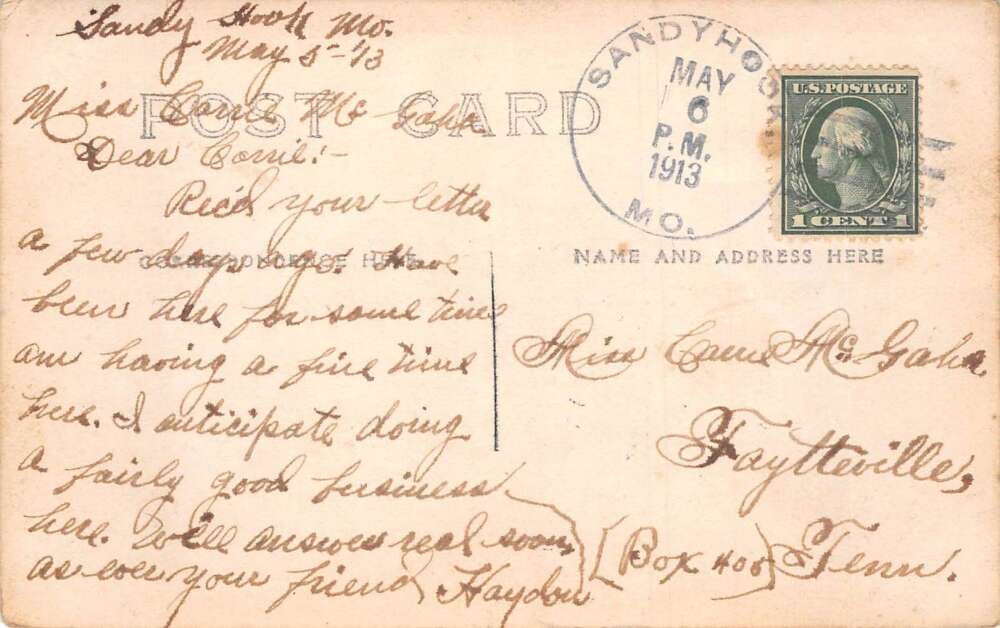 Sandy Hook Mo.
May 5-'13
POST CARD
Miss Carrie McGaha
Dear Carrie:-
Rec'd your letter
a few days ago. Have
CORRESPONDENCE HERE
been here for some time
am having a fine time
here. I anticipate doing
a fairly good business
here. Well answer real soon,
as ever your friend, Haydon
SANDYHOOK
MAY
6
P.M.
1913
MO.
U.S. POSTAGE
1 CENT 1
NAME AND ADDRESS HERE
Miss Carrie McGaha
Faytteville,
(Box 405) Tenn.